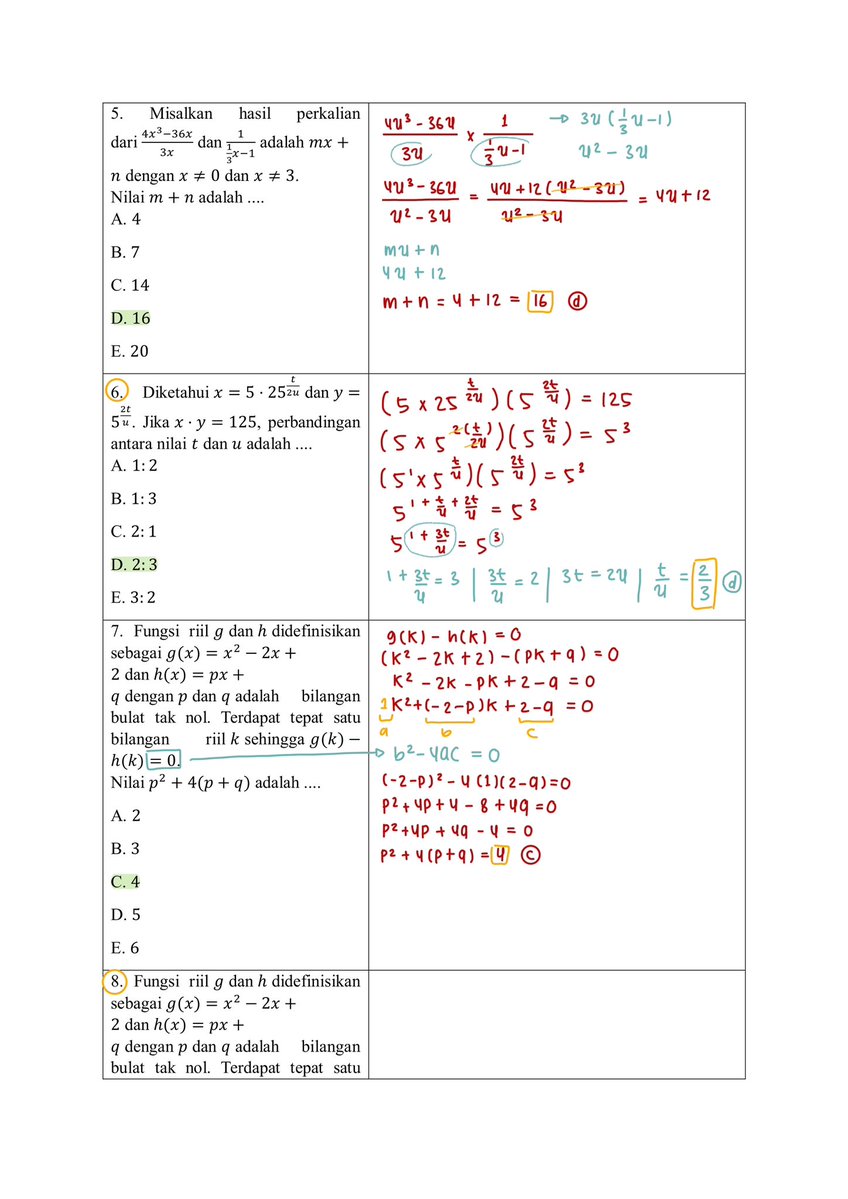 5. Misalkan hasil perkalian
dari (4x³−36x)/(3x) dan 1/(⅓x−1) adalah mx +
n dengan x ≠ 0 dan x ≠ 3.
Nilai m + n adalah ....
A. 4
B. 7
C. 14
D. 16
E. 20
(4x³ - 36x)/(3x) × 1/(⅓x-1) → 3x(⅓x-1)
x² - 3x
(4x³ - 36x)/(x² - 3x) = (4x+12(x² - 3x))/(x² - 3x) = 4x+12
mx+n
4x+12
m+n = 4+12 = 16 (d)
6. Diketahui x = 5 · 25^(t/2u) dan y =
5^(2t/u). Jika x · y = 125, perbandingan
antara nilai t dan u adalah ....
A. 1: 2
B. 1: 3
C. 2: 1
D. 2: 3
E. 3: 2
(5 × 25^(t/2u))(5^(2t/u)) = 125
(5 × 5^(2(t/2u)))(5^(2t/u)) = 5³
(5¹ × 5^(t/u))(5^(2t/u)) = 5³
5^(1 + t/u + 2t/u) = 5³
5^(1 + 3t/u) = 5³
1 + 3t/u = 3 | 3t/u = 2 | 3t = 2u | t/u = 2/3 (d)
7. Fungsi riil g dan h didefinisikan
sebagai g(x) = x² − 2x +
2 dan h(x) = px +
q dengan p dan q adalah bilangan
bulat tak nol. Terdapat tepat satu
bilangan riil k sehingga g(k) −
h(k) = 0.
Nilai p² + 4(p + q) adalah ....
A. 2
B. 3
C. 4
D. 5
E. 6
g(k) - h(k) = 0
(k² - 2k + 2) - (pk + q) = 0
k² - 2k - pk + 2 - q = 0
1k² + (-2-p)k + 2-q = 0
a b c
→ b² - 4ac = 0
(-2-p)² - 4(1)(2-q) = 0
p² + 4p + 4 - 8 + 4q = 0
p² + 4p + 4q - 4 = 0
p² + 4(p+q) = 4 (c)
8. Fungsi riil g dan h didefinisikan
sebagai g(x) = x² − 2x +
2 dan h(x) = px +
q dengan p dan q adalah bilangan
bulat tak nol. Terdapat tepat satu